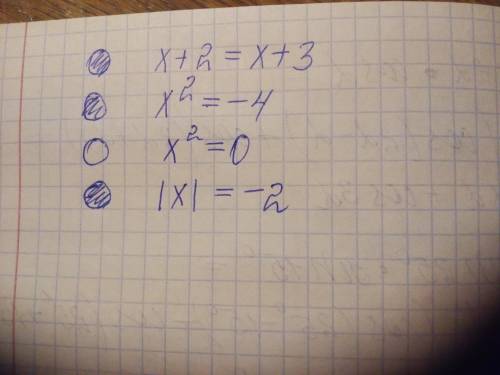 x+2=x+3
x²=-4
x²=0
|x|=-2